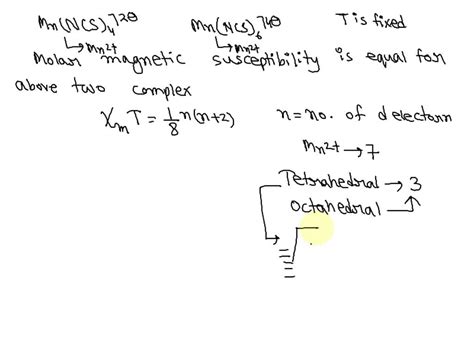 Mn(NCS)₄⁷²⊖ Mn(NCS)₆⁷⁴⊖ T is fixed
↳Mn2+ ↳Mn2+
Molar magnetic susceptibility is equal for
above two complex
XmT = 1/8 n(n+2) n = no. of d electorn
Mn2+ → 7
Tetrahedral → 3
octahedral